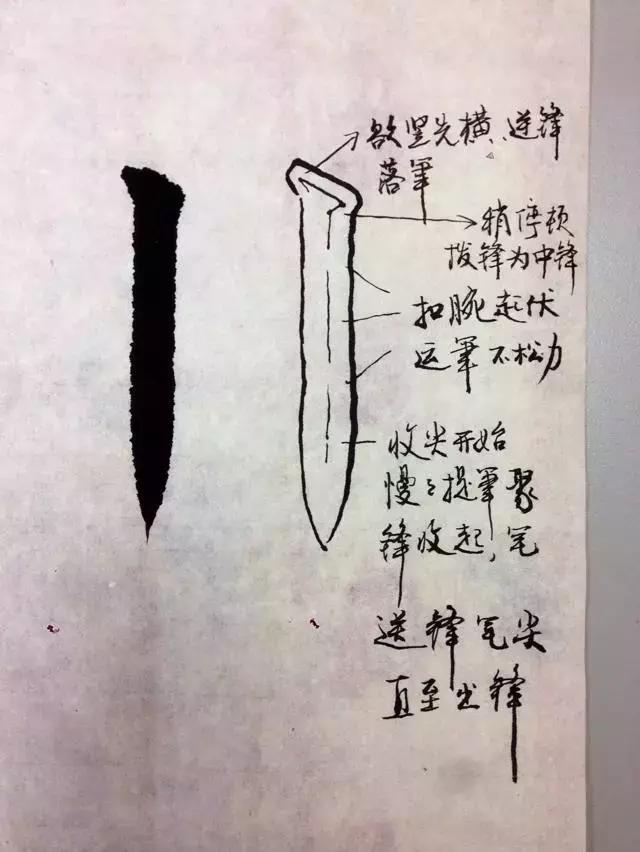 欲竖先横、逆锋
落笔
稍停顿
拨锋为中锋
扣腕起伏
运笔不松力
收尖开始
慢慢提笔聚
锋收起，笔
送锋笔尖
直至出锋